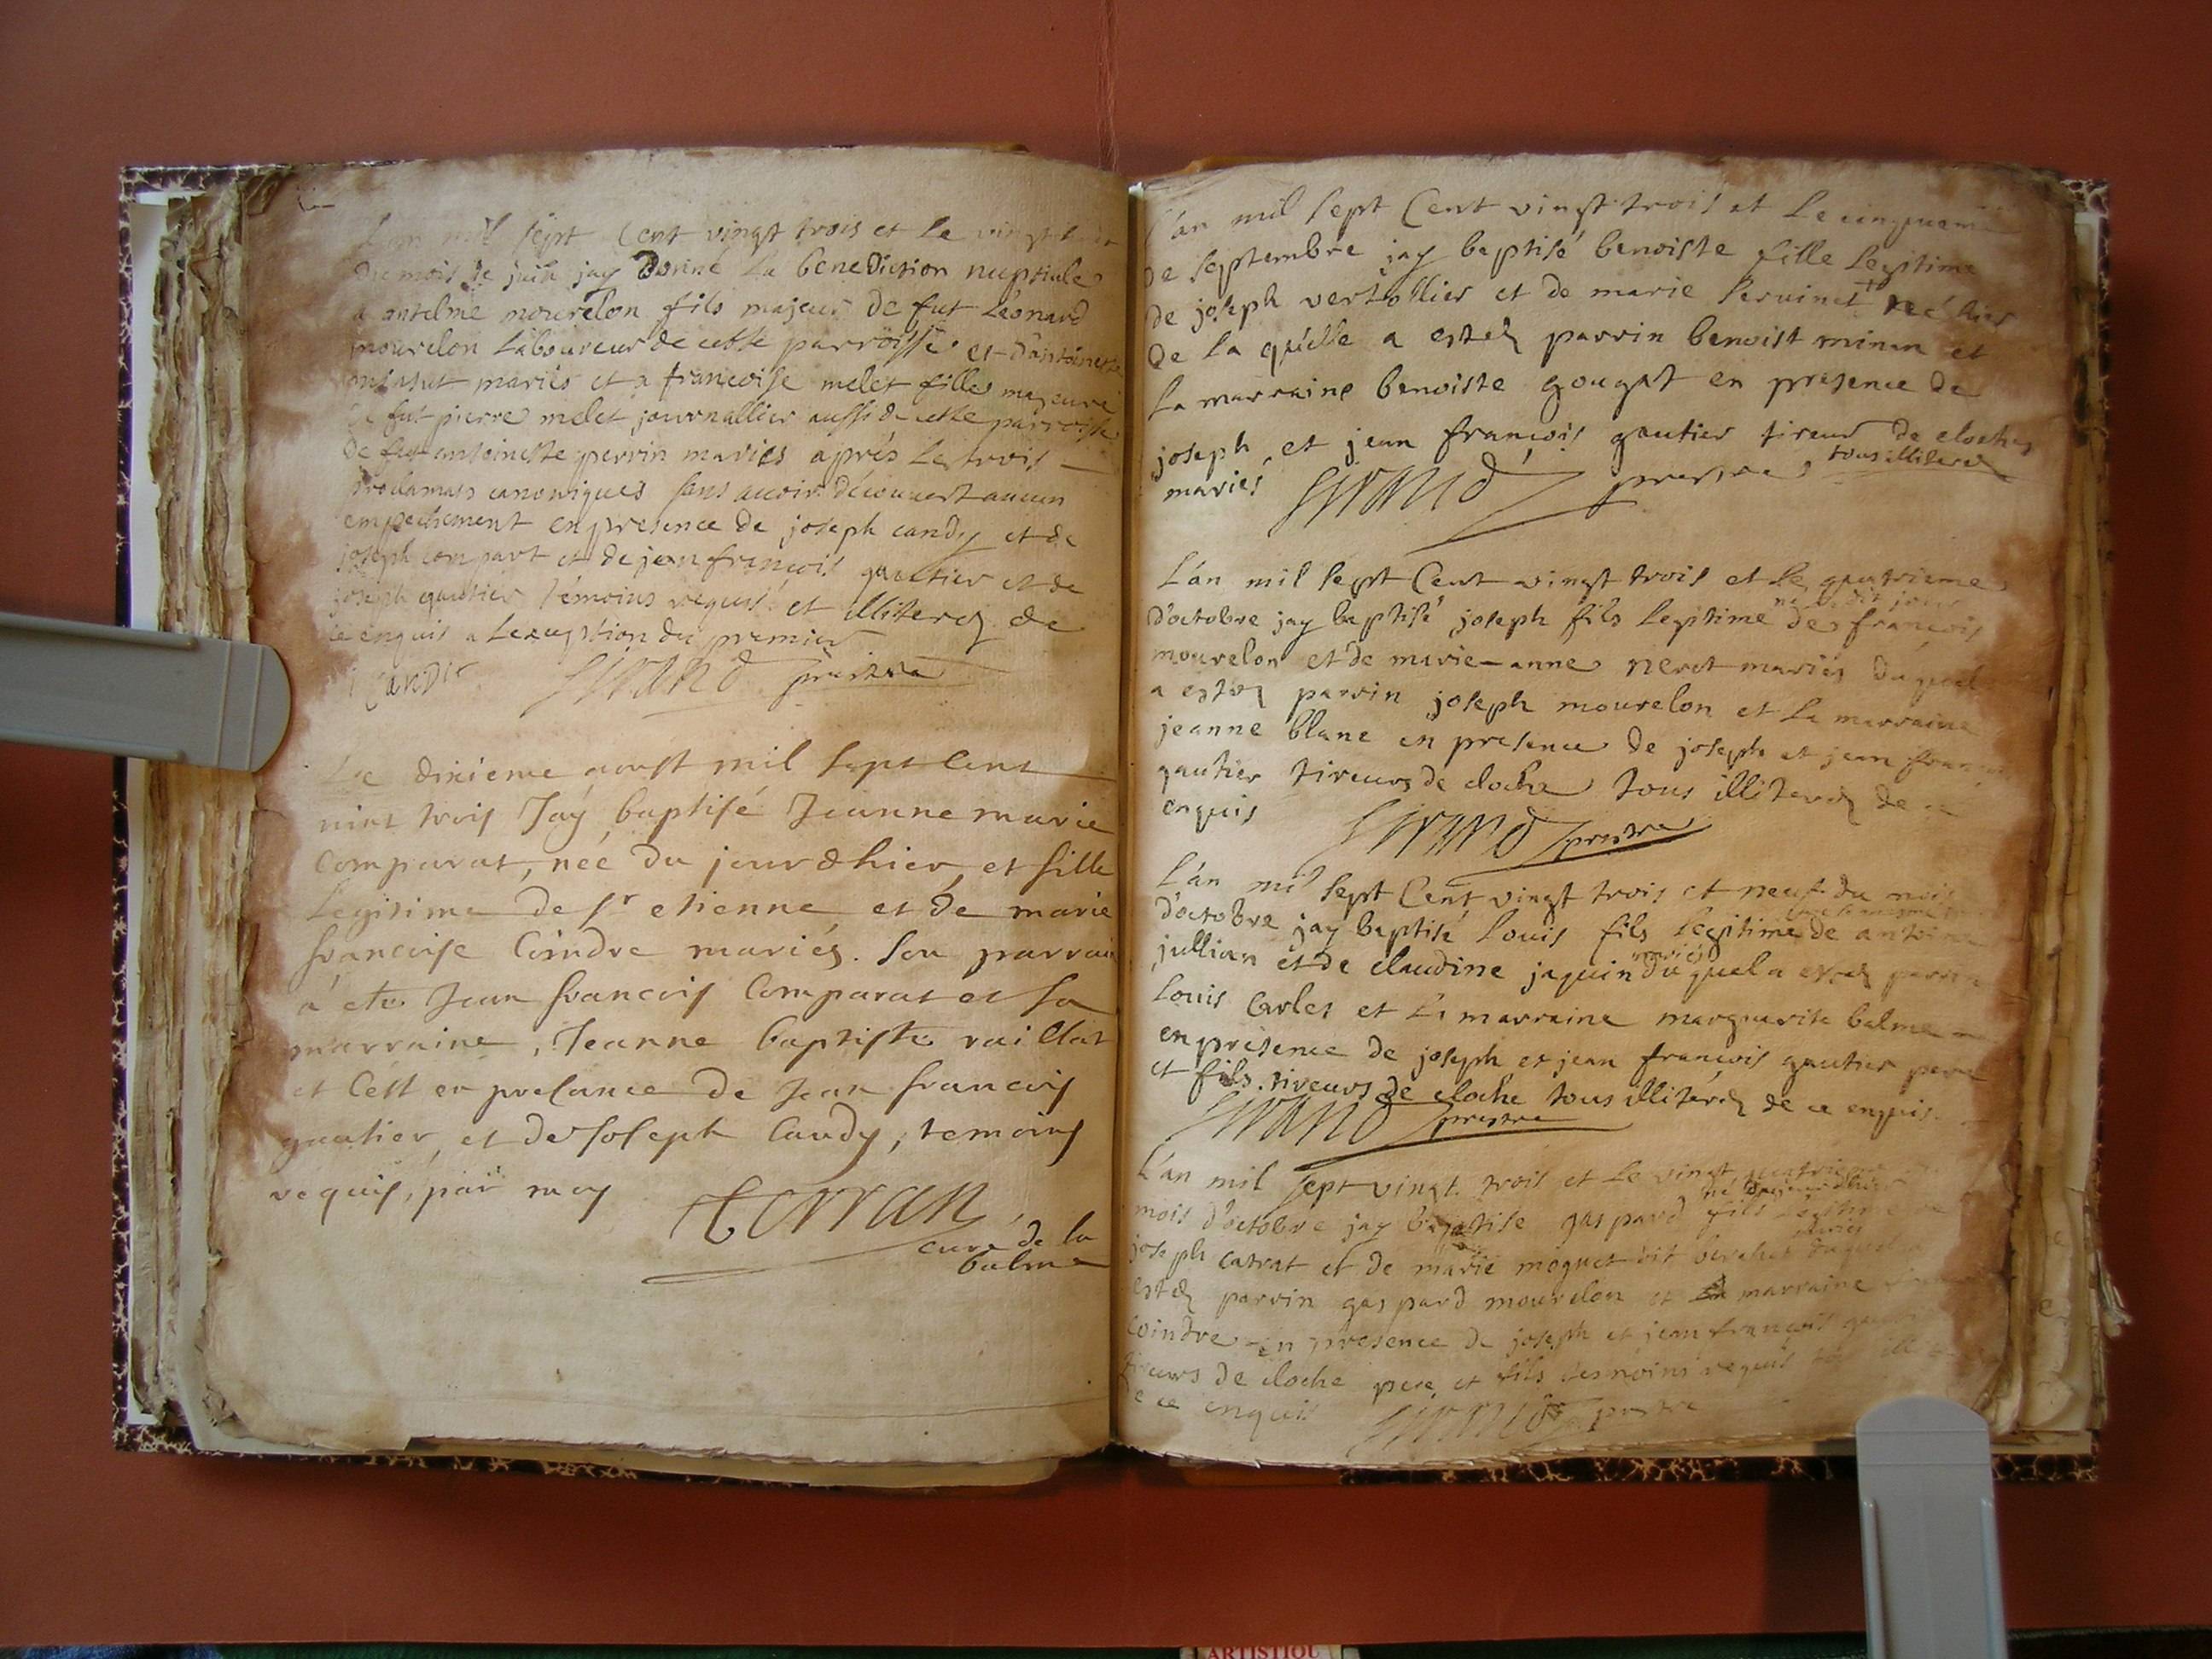 L'an mil sept Cent vingt trois et le vingt
du mois de juin jay donné la benediction nuptiale
a antelme mourelon fils majeur de fut Léonard
mourelon Laboureur de cette parroisse et d'antoinette
mariés et a francoise melet fille majeure
de fut pierre melet journallier aussi de cette parroisse
de fut antoinette perrin mariés aprés les trois
proclamats canoniques sans avoir découvert aucun
empechement en presence de joseph candy et de
joseph compart et de jean francois gautier et de
joseph gautier témoins requis et illiterez de
ce enquis a lexception du premier
j candy Sirand prestre
Le dixieme aoust mil sept cent
vint trois Jaÿ baptisé Jeanne marie
Comparat, née du jour dhier, et fille
Legitime de sr etienne et de marie
francoise Coindre mariés. Son parrain
a été Jean francois Comparat et sa
marraine, Jeanne baptiste vaillat
et C'est en presance de Jean francois
gautier, et de Joseph Candy, temoins
requis, par moy Terran
curé de la
balme
L'an mil sept Cent vingt trois et le cinquieme
de septembre jay baptisé benoiste fille legitime
de joseph vertollier et de marie née hier
de la quelle a estez parrin benoist minan et
la marraine benoiste gougat en presence de
joseph et jean françois gautier tireur de cloches
tous illiterez
mariés Sirand prestre
L'an mil sept Cent vingt trois et le quatrieme
né le dit jour
d'octobre jay baptisé joseph fils legitime de françois
mourelon et de marie-anne neret mariés du quel
a estez parrin joseph mourelon et la marraine
jeanne blanc en presence de joseph et jean
gautier tireurs de cloche tous illiterez de ce
enquis Sirand prestre
L'an mil sept Cent vingt trois et neuf du mois
d'octobre jay baptisé Louis fils legitime de antoine
mariés
jullian et de claudine jaquin du quel a estez parrin
Louis Carles et la marraine marguerite balme
en présence de joseph et jean françois gautier pere
et fils tireurs de cloche tous illiterez de ce enquis.
Sirand prestre
L'an mil sept vingt trois et le vingt quatrieme
né du jour dhier
mois d'octobre jay baptise gaspard fils legitime de
mariés
joseph catrat et de marie moguet dit berchet du quel
estez parrin gaspard mourelon et la marraine
Coindre en presence de joseph et jean françois
tireurs de cloche pere et fils tesmoins requis
de ce enquis Sirand prestre
ARTISTIQU